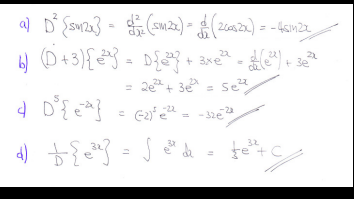 a) D²{sin2x} = d²/dx²(sin2x) = d/dx(2cos2x) = -4sin2x
b) (D+3){e^2x} = D{e^2x} + 3×e^2x = d/dx(e^2x) + 3e^2x
= 2e^2x + 3e^2x = 5e^2x
c) D⁵{e^-2x} = (-2)⁵e^-2x = -32e^-2x
d) 1/D{e^3x} = ∫ e^3x dx = 1/3e^3x + C